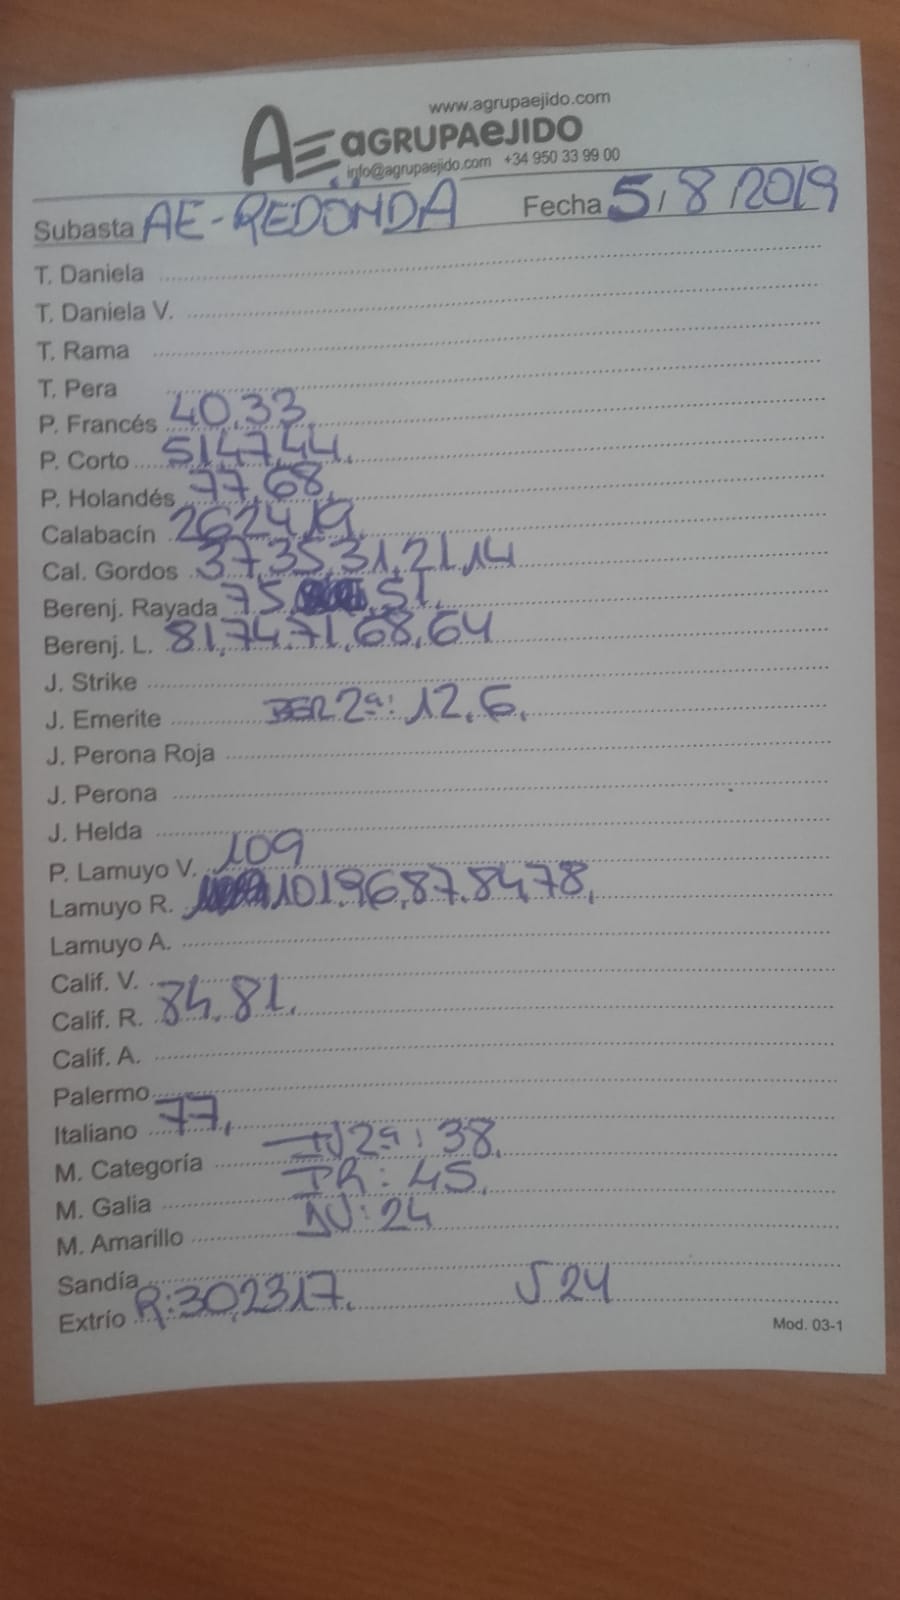 www.agrupaejido.com
AE aGRUPAeJIDO
info@agrupaejido.com +34 950 33 99 00
Subasta AE-REDONDA Fecha 5/8/2019
T. Daniela
T. Daniela V.
T. Rama
T. Pera
P. Francés 40,33
P. Corto 51,47,44.
P. Holandés 77,68
Calabacín 26,24,19
Cal. Gordos 37,35,31,21,14
Berenj. Rayada 75, ,51
Berenj. L. 81,74,71,68,64
J. Strike
J. Emerite BER 2ª: 12,6.
J. Perona Roja
J. Perona
J. Helda
P. Lamuyo V. 109
Lamuyo R. 101,96,87,84,78,
Lamuyo A.
Calif. V.
Calif. R. 84,81.
Calif. A.
Palermo
Italiano 77,
M. Categoría 2ª: 38.
M. Galia : 45.
M. Amarillo : 24
Sandía
Extrío R:30,23,17. J 24
Mod. 03-1